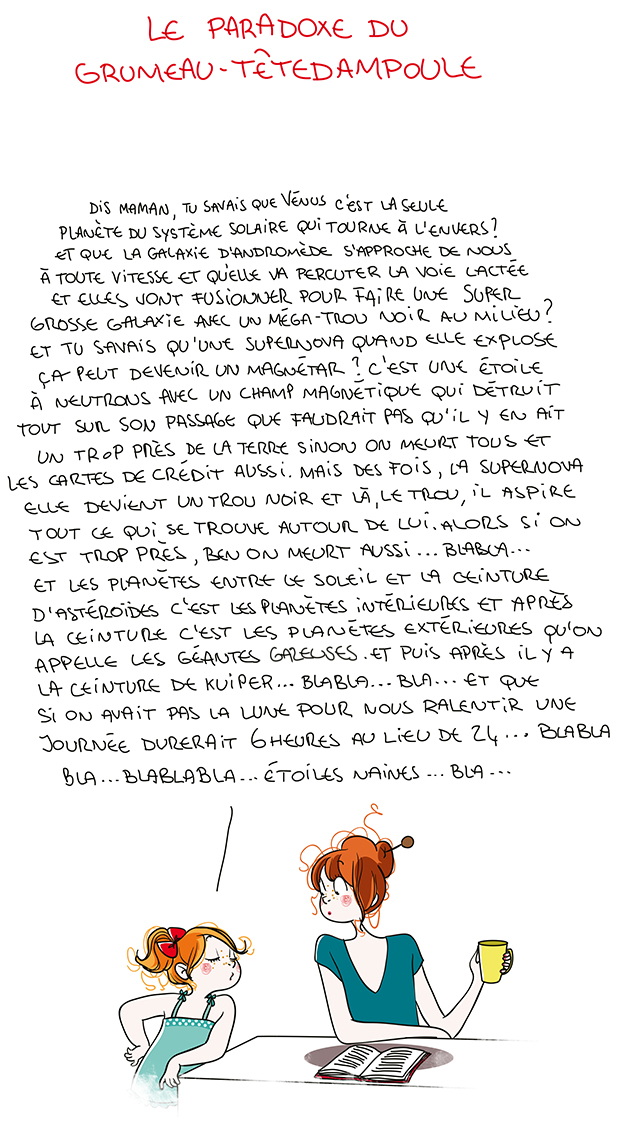 LE PARADOXE DU
GRUMEAU-TÊTEDAMPOULE
DIS MAMAN, TU SAVAIS QUE VÉNUS C'EST LA SEULE
PLANÈTE DU SYSTÈME SOLAIRE QUI TOURNE À L'ENVERS?
ET QUE LA GALAXIE D'ANDROMÈDE S'APPROCHE DE NOUS
À TOUTE VITESSE ET QU'ELLE VA PERCUTER LA VOIE LACTÉE
ET ELLES VONT FUSIONNER POUR FAIRE UNE SUPER
GROSSE GALAXIE AVEC UN MÉGA-TROU NOIR AU MILIEU?
ET TU SAVAIS QU'UNE SUPERNOVA QUAND ELLE EXPLOSE
ÇA PEUT DEVENIR UN MAGNÉTAR? C'EST UNE ÉTOILE
À NEUTRONS AVEC UN CHAMP MAGNÉTIQUE QUI DÉTRUIT
TOUT SUR SON PASSAGE QUE FAUDRAIT PAS QU'IL Y EN AIT
UN TROP PRÈS DE LA TERRE SINON ON MEURT TOUS ET
LES CARTES DE CRÉDIT AUSSI. MAIS DES FOIS, LA SUPERNOVA
ELLE DEVIENT UN TROU NOIR ET LÀ, LE TROU, IL ASPIRE
TOUT CE QUI SE TROUVE AUTOUR DE LUI. ALORS SI ON
EST TROP PRÈS, BEN ON MEURT AUSSI... BLABLA...
ET LES PLANÈTES ENTRE LE SOLEIL ET LA CEINTURE
D'ASTÉROÏDES C'EST LES PLANÈTES INTÉRIEURES ET APRÈS
LA CEINTURE C'EST LES PLANÈTES EXTÉRIEURES QU'ON
APPELLE LES GÉANTES GAZEUSES. ET PUIS APRÈS IL Y A
LA CEINTURE DE KUIPER... BLABLA... BLA... ET QUE
SI ON AVAIT PAS LA LUNE POUR NOUS RALENTIR UNE
JOURNÉE DURERAIT 6 HEURES AU LIEU DE 24... BLABLA
BLA... BLABLABLA... ÉTOILES NAINES... BLA...